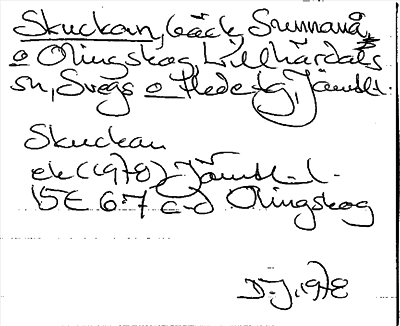 Skuckan, bäck, Sunnanå
o Olingskog Lillhärdals
sn, Svegs o Hede tg, Jämtl.
Skuckan
ek (1978) Jämtl. l.
15E 6-7 c-d Olingskog
D.J. 1978